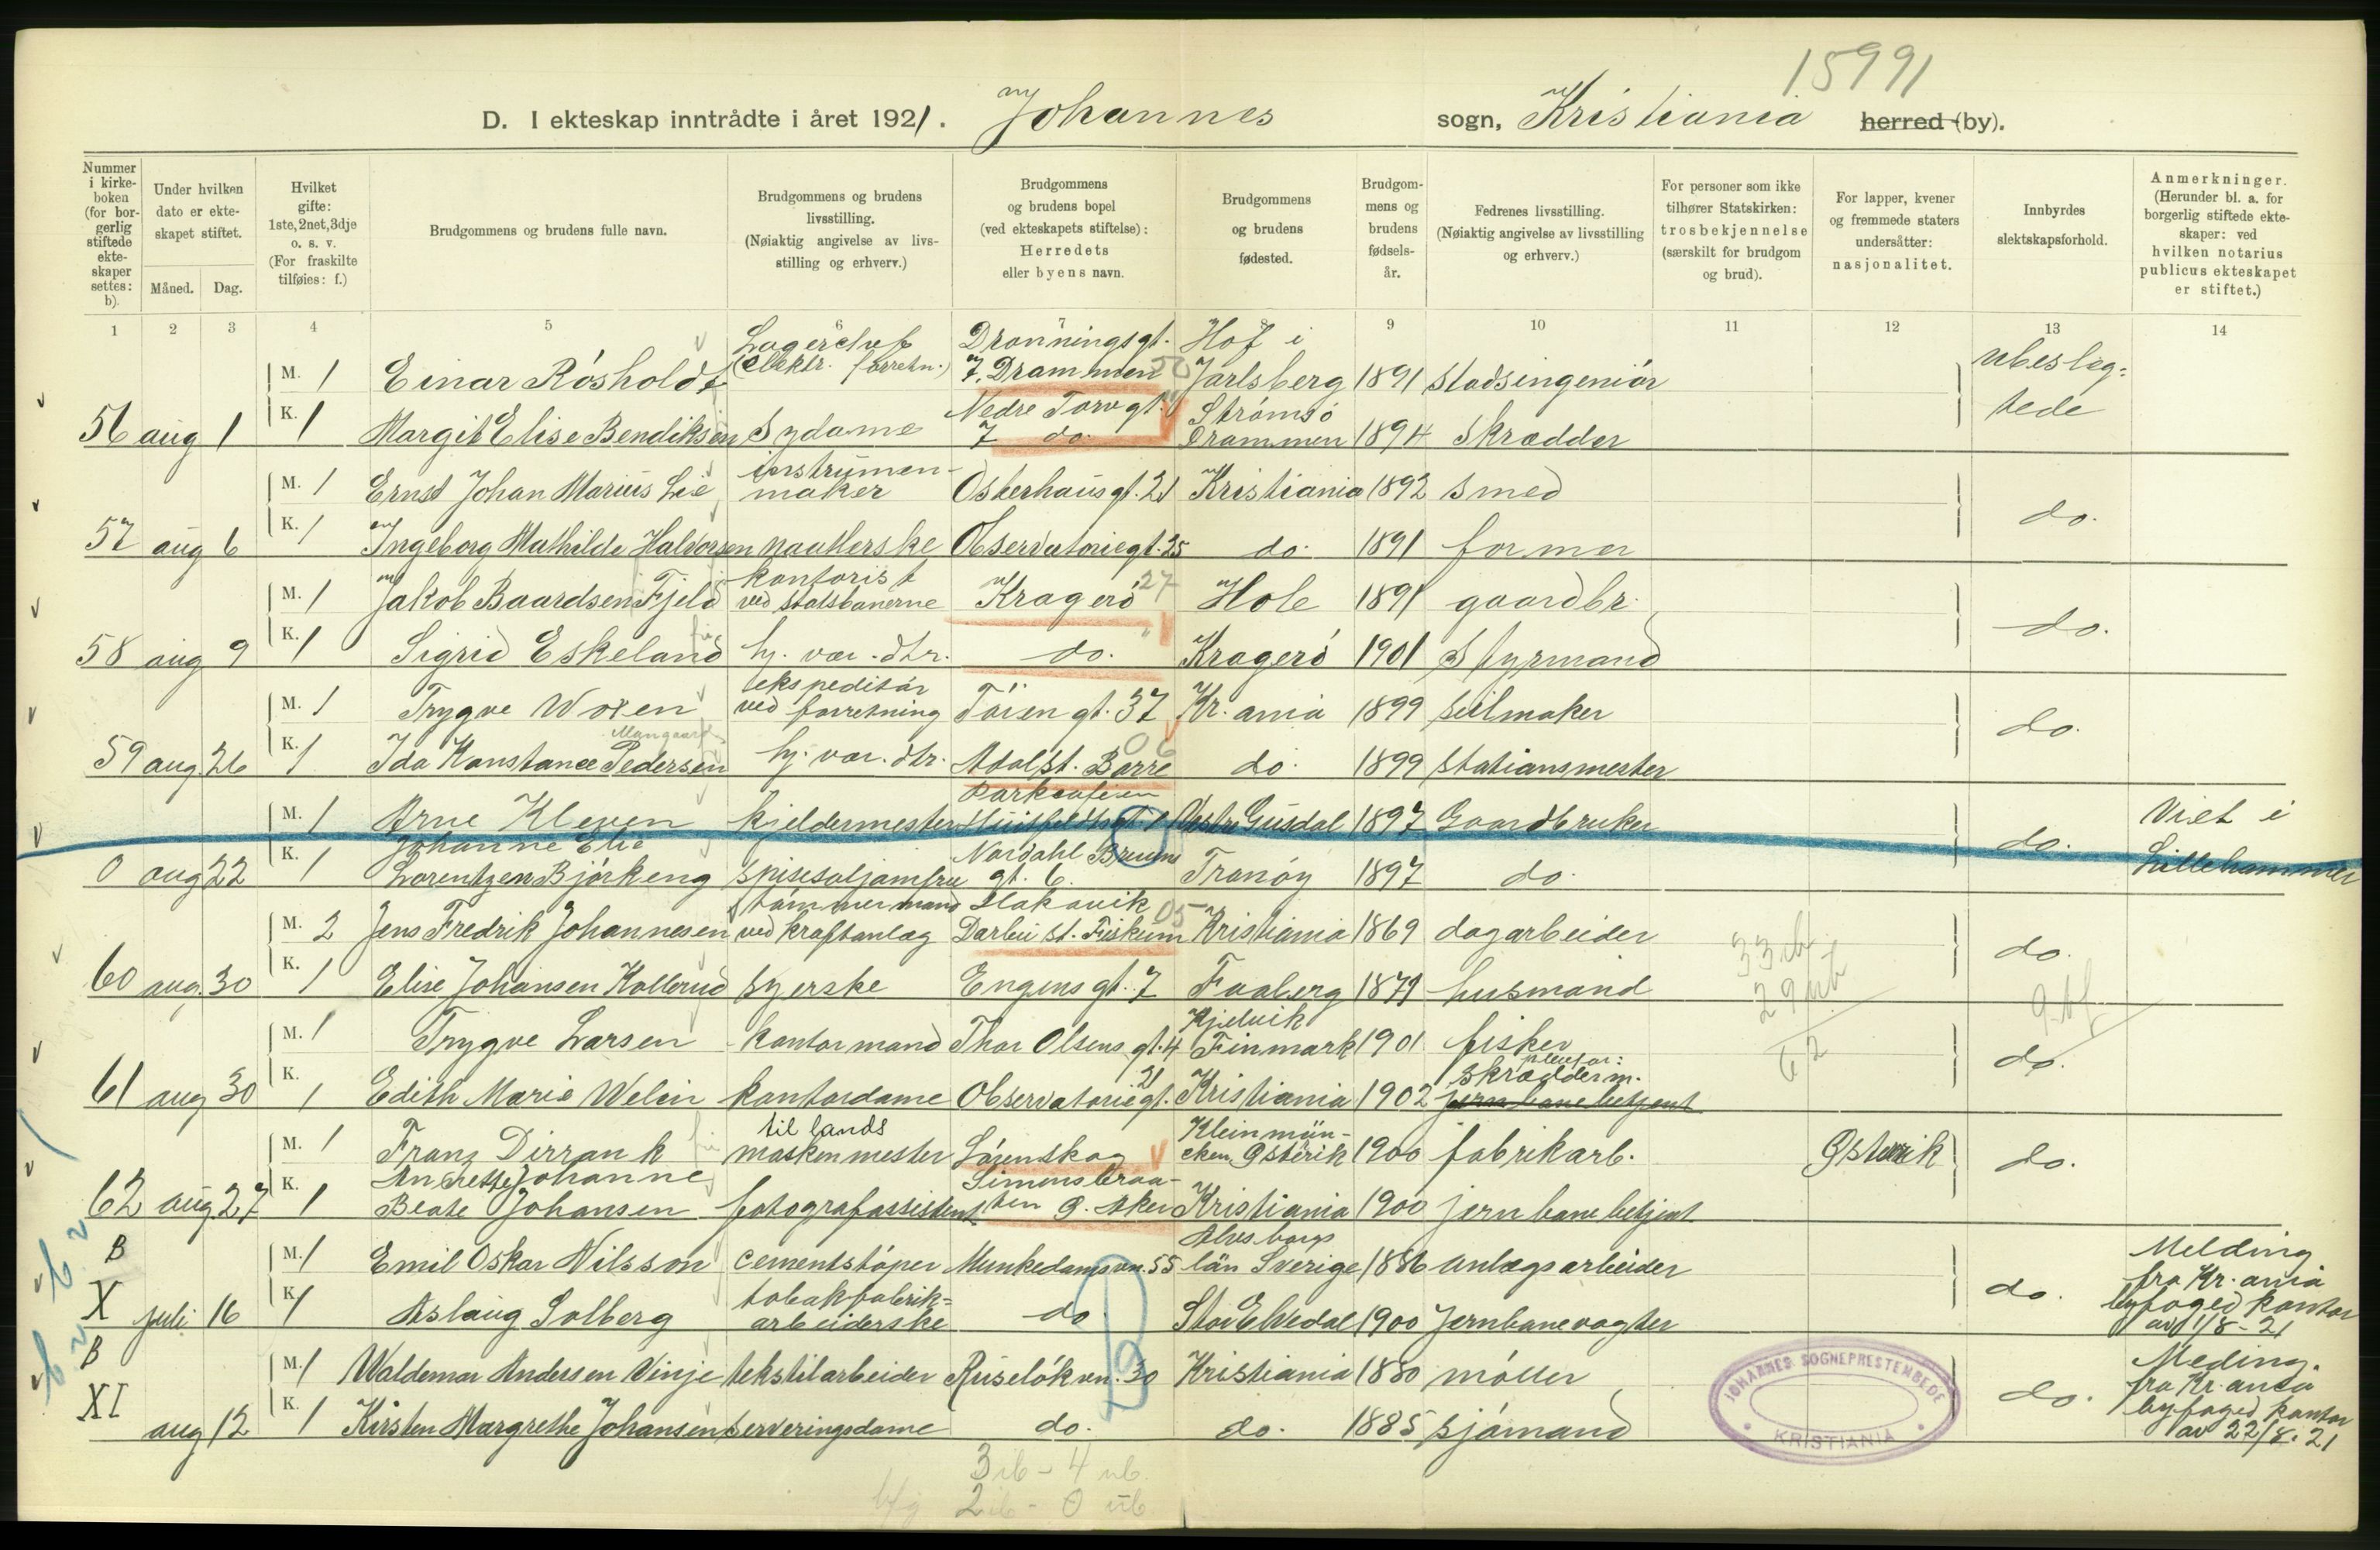 15991
D. I ekteskap inntrådte i året 1921. Johannes sogn, Kristiania herred (by).
Nummer i kirkeboken (for borgerlig stiftede ekteskaper settes: b).
Under hvilken dato er ekteskapet stiftet.
Måned. Dag.
Hvilket gifte: 1ste, 2net, 3dje o. s. v. (For fraskilte tilføies: f.)
Brudgommens og brudens fulle navn.
Brudgommens og brudens livsstilling. (Nøiaktig angivelse av livsstilling og erhverv.)
Brudgommens og brudens bopel (ved ekteskapets stiftelse): Herredets eller byens navn.
Brudgommens og brudens fødested.
Brudgommens og brudens fødselsår.
Fedrenes livsstilling. (Nøiaktig angivelse av livsstilling og erhverv.)
For personer som ikke tilhører Statskirken: trosbekjennelse (særskilt for brudgom og brud).
For lapper, kvener og fremmede staters undersåtter: nasjonalitet.
Innbyrdes slektskapsforhold.
Anmerkninger. (Herunder bl. a. for borgerlig stiftede ekteskaper: ved hvilken notarius publicus ekteskapet er stiftet.)
1 2 3 4 5 6 7 8 9 10 11 12 13 14
M. 1 Einar Rósholdt Lagerchef (elektr. forretn.) Dronningsgt. 7, Drammen Hof i Jarlsberg 1891 stadsingeniór ubeslæg=
56 aug 1 K. 1 Margit Elise Bendiksen Sydame Nedre Torvgt. 7 do. Strómsó Drammen 1894 Skrædder tede
M. 1 Ernst Johan Marius Lie instrumen-maker Osterhausgt. 21 Kristiania 1892 smed
57 aug 6 K. 1 Ingeborg Mathilde Halvorsen naatlerske Observatoriegt. 25 do. 1891 former do.
M. 1 Jakob Baardsen Fjeld kontorist ved statsbanerne Kragerö 27 Hole 1891 gaardbr.
58 aug 9 K. 1 Sigrid Eskeland hj. vær. dtr. do. Kragerö 1901 Styrmand do.
M. 1 Trygve Woxen ekspeditór ved forretning Töien gt. 37 Kr.ania 1899 seilmaker
59 aug. 26 K. 1 Ida Konstance Pedersen hj. vær. dtr. Adal st. Borre do. 1899 stationsmester do.
M. 1 Arne Kleven kjeldermester Parkcafeen Huitfeldtsgt. Vestre Gusdal 1897 Gaardbruker Viet i
0 aug 22 K. 1 Johanne Elie Lorentzen Bjórkeng spisesaljomfru Nordahl Bruuns gt. 6. Tranöy 1897 do. do. Lillehammer
M. 2 Jens Fredrik Johannesen tómmermand ved kraftanlæg Hakavik Darbu st. Fiskum 05 Kristiania 1869 dagarbeider
60 aug. 30 K. 1 Elise Johansen Kollerud syerske Engens gt. 7 Faaberg 1879 husmand do.
M. 1 Trygve Larsen kontormand Thor Olsens gt. 4 Kjelvik Finmark 1901 fisker
61 aug 30 K. 1 Edith Marie Welin kontordame Observatoriegt. 21 Kristiania 1902 skrædderm. jernbanebetjent do.
M. 1 Franz Dirrank til lands maskinmester Lórenskog Kleinmün-chen, Østerik 1900 fabrikarb. Østerrik do.
62 aug. 27 K. 1 Anerette Johanne Beate Johansen fotografassistent Simensbraa-ten Ø. Aker Kristiania 1900 jernbanebetjent
B X M. 1 Emil Oskar Nilsson cementstóper Munkedamsvn. 55 Alvsborgs län Sverige 1886 anlægsarbeider Melding fra Kr.ania
juli 16 K. 1 Aslaug Solberg tobakfabrik=arbeiderske do. Stor Elvedal 1900 Jernbanevogter do. byfoged kontor av 1/8-21
B XI M. 1 Waldemar Andersen Vinje tekstilarbeider Ruselókvn. 30 Kristiania 1880 móller Meding. fra Kr.ania
aug 12 K. 1 Kirsten Margrethe Johansen serveringsdame do. do. 1885 sjómand do. byfoged kontor av 22/8.21
JOHANNES SOGNEPRESTEMBEDE KRISTIANIA
3 ib - 4 ub.
2 ib - 0 ub